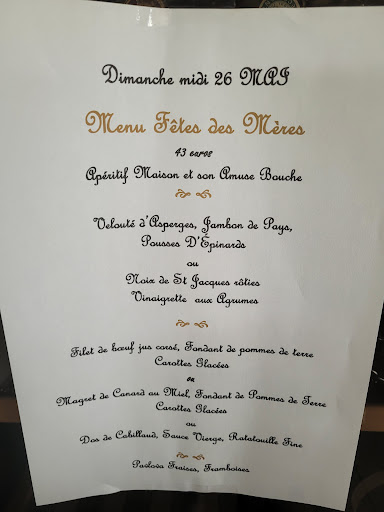 Dimanche midi 26 MAI
Menu Fêtes des Mères
43 euros
Apéritif Maison et son Amuse Bouche
Velouté d'Asperges, Jambon de Pays,
Pousses D'Épinards
ou
Noix de St Jacques rôties
Vinaigrette aux Agrumes
Filet de bœuf jus corsé, Fondant de pommes de terre
Carottes Glacées
ou
Magret de Canard au Miel, Fondant de Pommes de Terre
Carottes Glacées
ou
Dos de Cabillaud, Sauce Vierge, Ratatouille Fine
Pavlova Fraises, Framboises